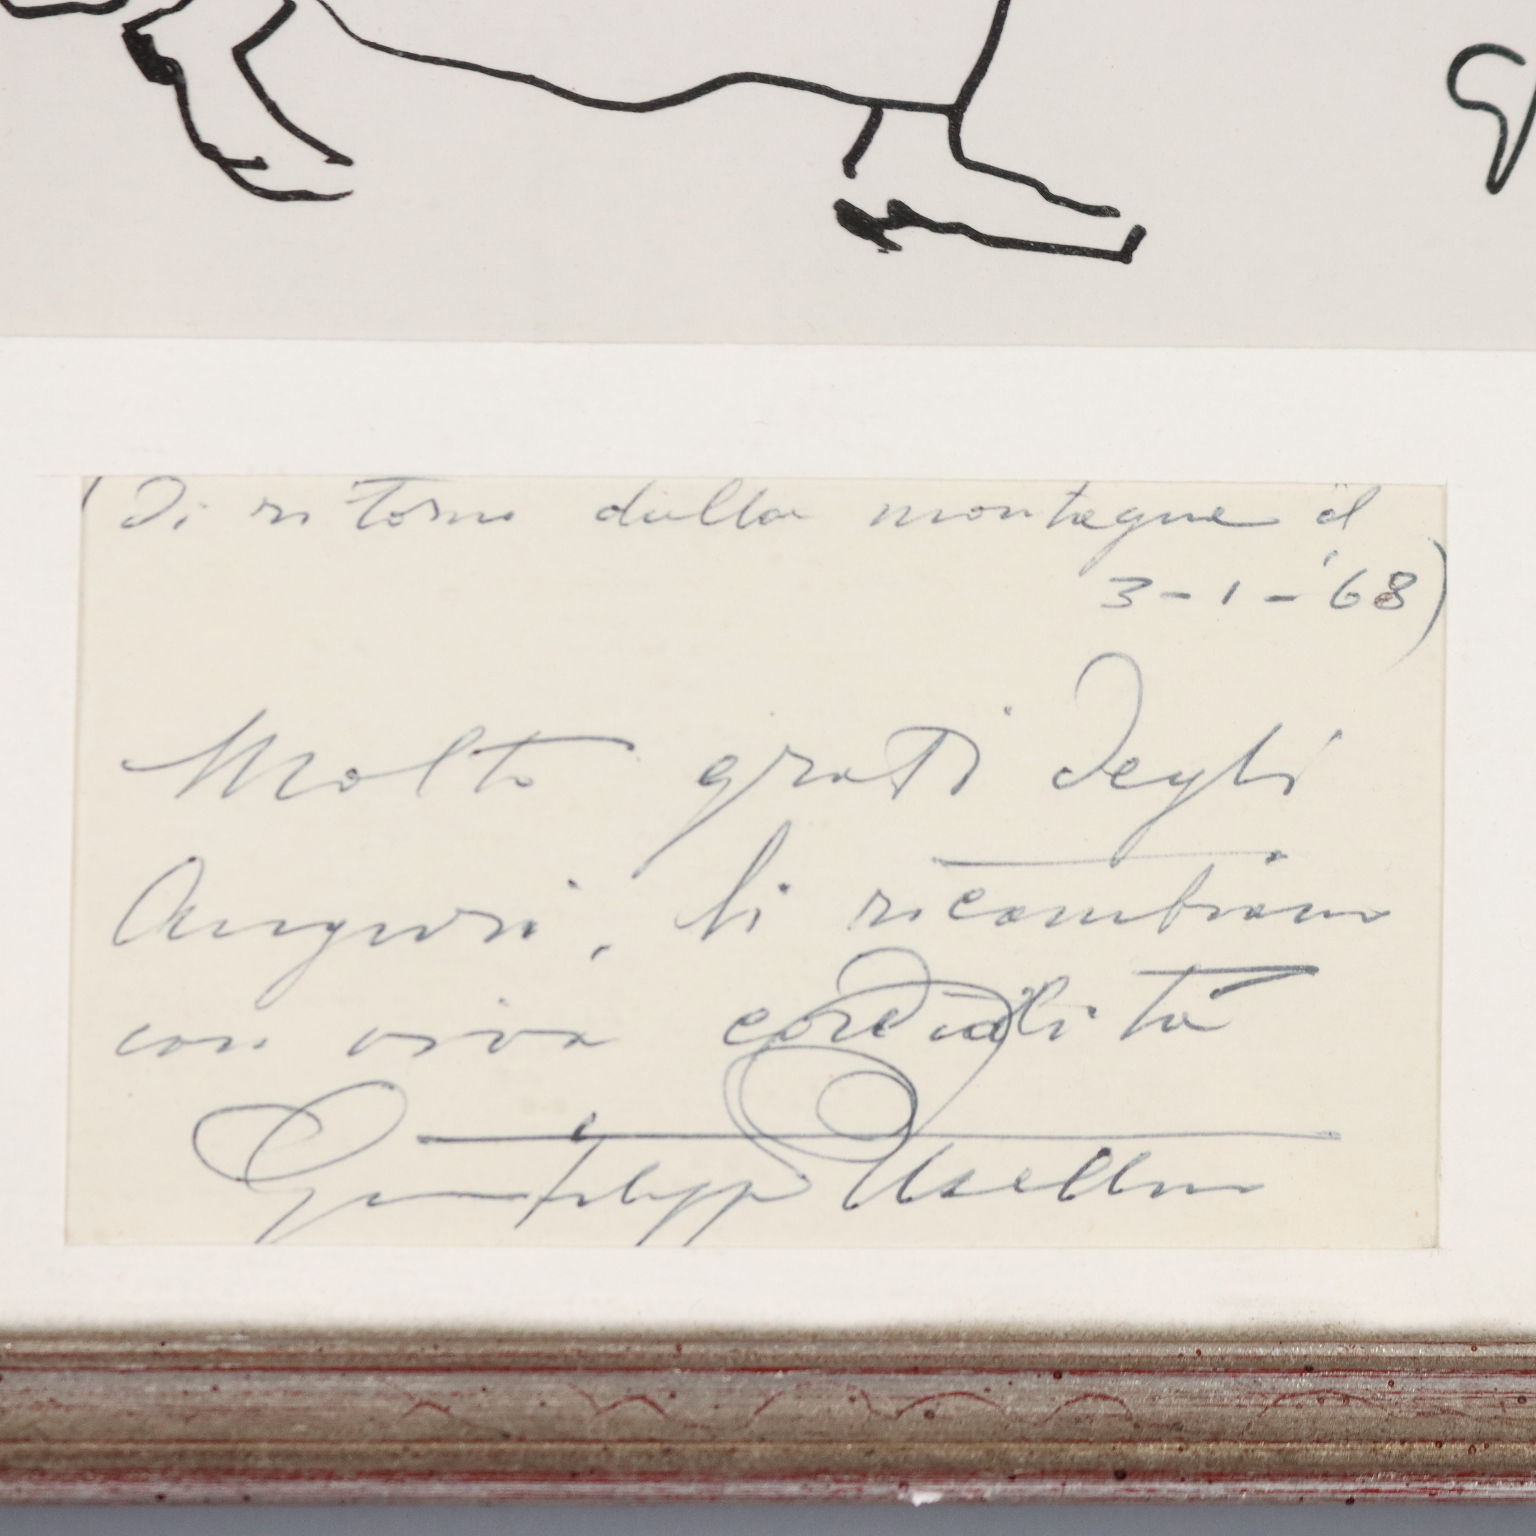 (Di ritorno dalla montagna il
3-1-'68)
Molto grati degli
Auguri, li ricambiamo
con viva cordialità
Gianfilippo Usellini